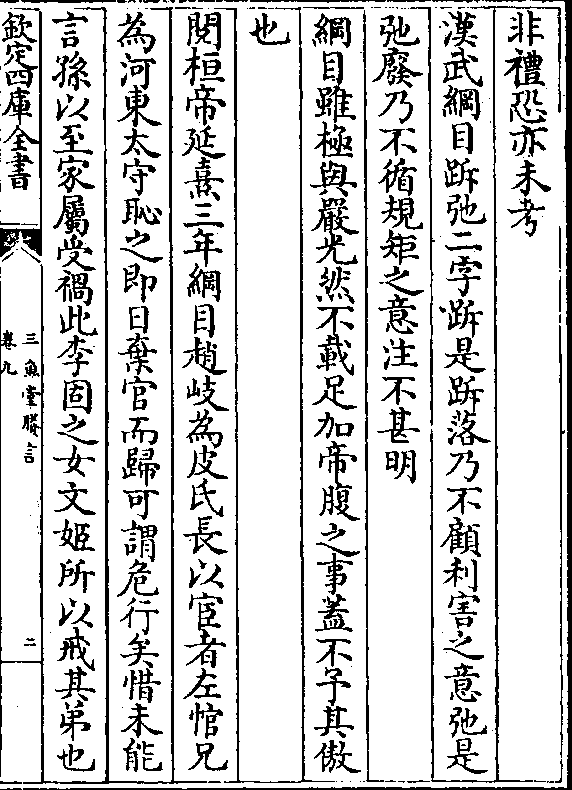 非禮恐亦未考
漢武綱目跅弛二字跅是跅落乃不顧利害之意弛是
弛廢乃不循規矩之意注不甚明
綱目雖極與嚴光然不載足加帝腹之事蓋不予其傲
也
閱桓帝延熹三年綱目趙岐為皮氏長以宦者左悺兄
為河東太守恥之即日棄官而歸可謂危行矣惜未能
言孫以至家屬受禍此李固之女文姬所以戒其弟也
欽定四庫全書
三魚堂賸言
卷九
二